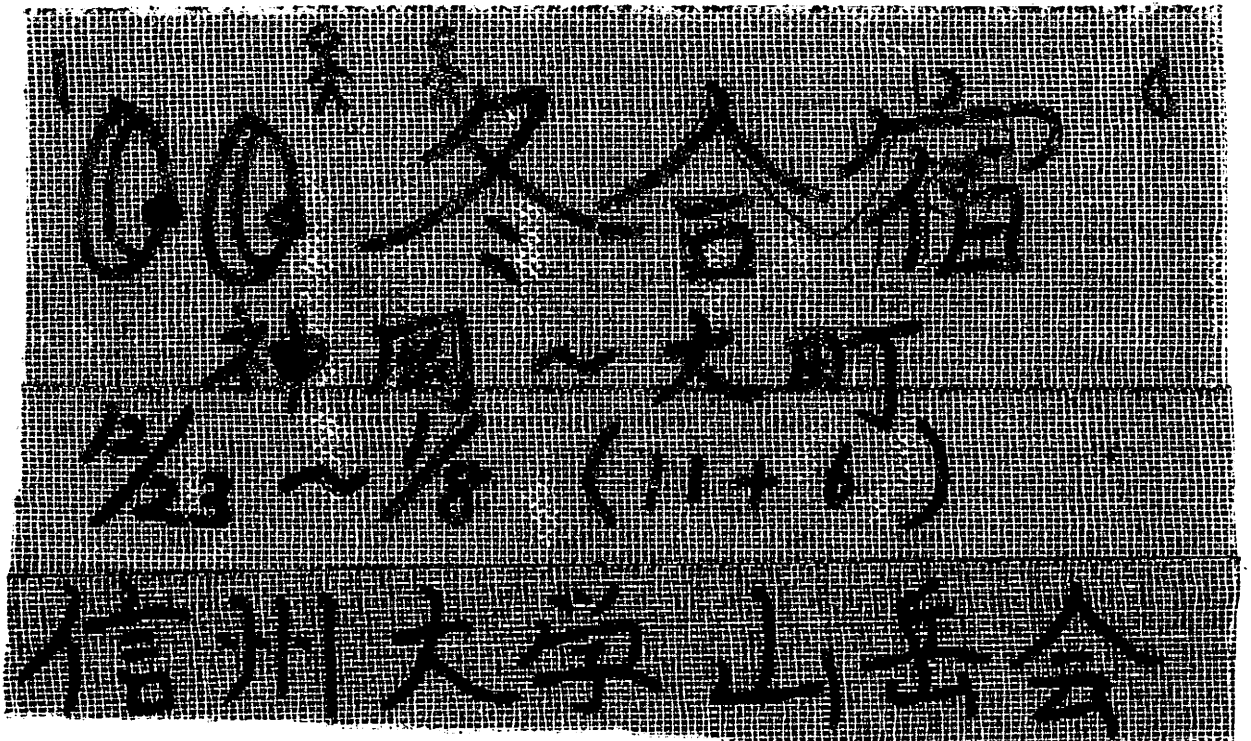 00 冬合宿
神岡～大町
12/23～1/8 (11+6)
信州大学山岳会